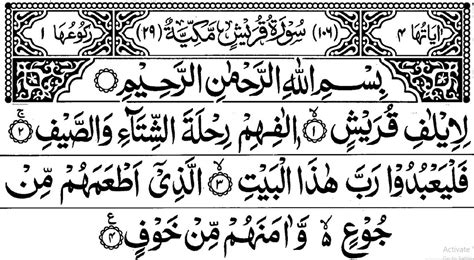 اٰیَاتُهَا ۴ (۱۰۶) سُوْرَةُ قُرَيْشٍ مَكِّيَّةٌ (۲۹) رُكُوْعُهَا ۱
بِسْمِ اللّٰهِ الرَّحْمٰنِ الرَّحِيْمِ
لِاِيْلٰفِ قُرَيْشٍ ۙ﴿۱﴾ اٖلٰفِهِمْ رِحْلَةَ الشِّتَآءِ وَالصَّيْفِ ۚ﴿۲﴾
فَلْيَعْبُدُوْا رَبَّ هٰذَا الْبَيْتِ ۙ﴿۳﴾ الَّذِيْٓ اَطْعَمَهُمْ مِّنْ
جُوْعٍ ۙ۬ وَّاٰمَنَهُمْ مِّنْ خَوْفٍ ﴿۴﴾ ع
Activate